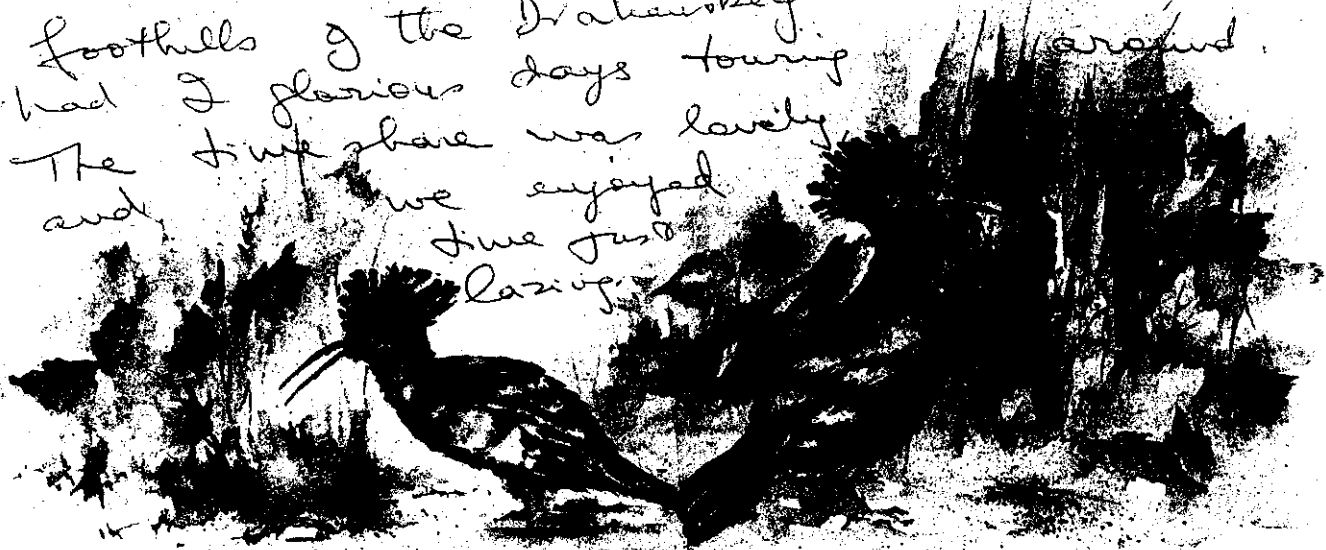 foothills of the Drakensberg
had 2 glorious days touring around.
The time share was lovely,
and, we enjoyed
time just
lazing.